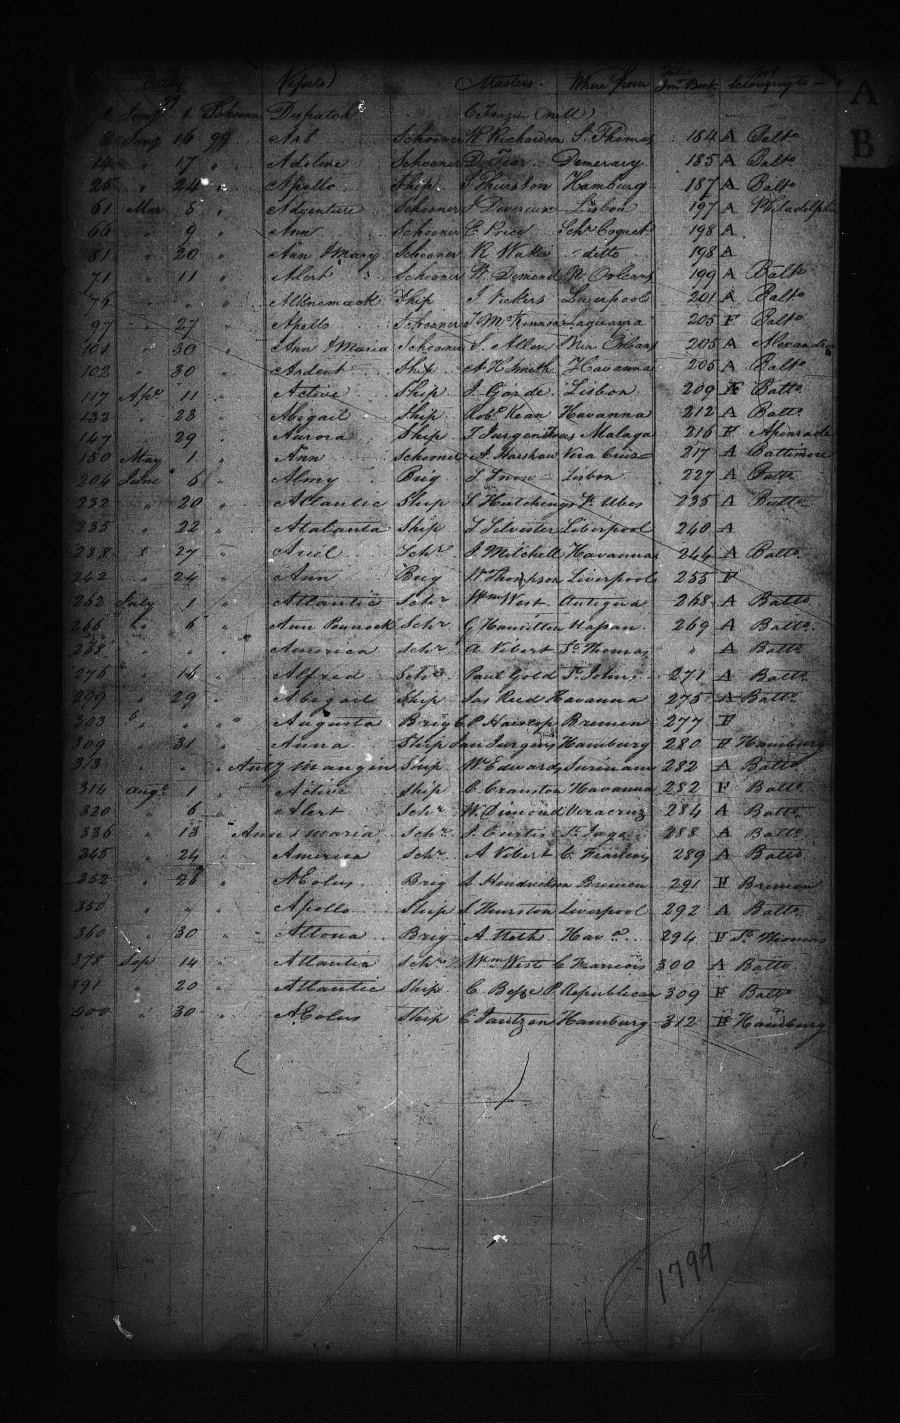 Entry Vessels Masters Where from Book belonging to A
1 Jany 1 Schooner Dispatch C Frazier (null)
8 Jany 16 99 Schooner W Richardson St Thomas 184 A Balto B
14 " 17 " Adeline Schooner Demerary 185 A Balto
25 " 24 " Apollo Ship S Thurston Hamburg 187 A Balto
61 Mar 5 " Adventure Schooner J Devereux Lisbon 197 A Philadelph
66 " 9 " Ann Schooner E Price 198 A
81 " 20 " Ann & Mary Schooner R ditto 198 A
71 " 11 " Alert Schooner W. Dimond N. Orleans 199 A Balto
76 " " " Ship J Vickers Liverpool 201 A Balto
97 " 27 " Apollo Schooner J McKinnon Laguayra 205 F Balto
101 " 30 " Ann & Maria Schooner J. Allen New Orleans 205 A Alexandria
102 " 30 " Ardent Ship A H Smith Havanna 205 A Balto
117 Apl 11 " Active Ship J. Garde Lisbon 209 Balto
132 " 23 " Abigail Ship Robt Kean Havanna 212 A Balto
147 " 29 " Aurora Ship Malaga 216 F
150 May 1 " Ann Schooner Vera Cruz 217 A Baltimore
204 June 6 " Almy Brig Lisbon 227 A Balto
232 " 20 " Atlantic Ship S Hutchings St Ubes 235 A Balto
235 " 22 " Atalanta Ship L Silvester Liverpool 240 A
238 " 27 " Ariel Schr J. Mitchell Havanna 244 A Balto
242 " 24 " Ann Brig W Thompson Liverpool 255 F
262 July 1 " Atlantic Schr Wm West Antigua 268 A Balto
266 " 6 " Ann Pennock Schr G Hamilton 269 A Balto
268 " " America Schr A Vibert St Thomas " A Balto
276 " 14 " Alfred Schr Paul Gold St Johns 271 A Balto
299 " 29 " Abigail Ship Jas Reed Havanna 275 A Balto
303 " " " Augusta Brig Bremen 277 F
309 " 31 " Anna Ship Jan Jurgens Hamburg 280 F Hamburg
313 " " " Antz Mangin Ship W Edwards Surinam 282 A Balto
314 Augt 1 " Active Ship C. Cranston Havanna 282 F Balto
320 " 6 " Alert Schr W. Dimond Veracruz 284 A Balto
336 " 13 " Ann & Maria Schr J. Curtis St Jago 288 A Balto
345 " 24 " America Schr A Vibert 289 A Balto
352 " 28 " AEolus Brig S. Hendrickson Bremen 291 F Bremen
350 " " " Apollo Ship S Thurston Liverpool 292 A Balto
360 " 30 " Altona Brig A. Noth 294 F St Thomas
378 Sep 14 " Atlantic Schr Wm West C Francois 300 A Balto
391 " 20 " Atlantic Ship P Republican 309 F Balto
400 " 30 " AEolus Ship Hamburg 312 F Hamburg
1799